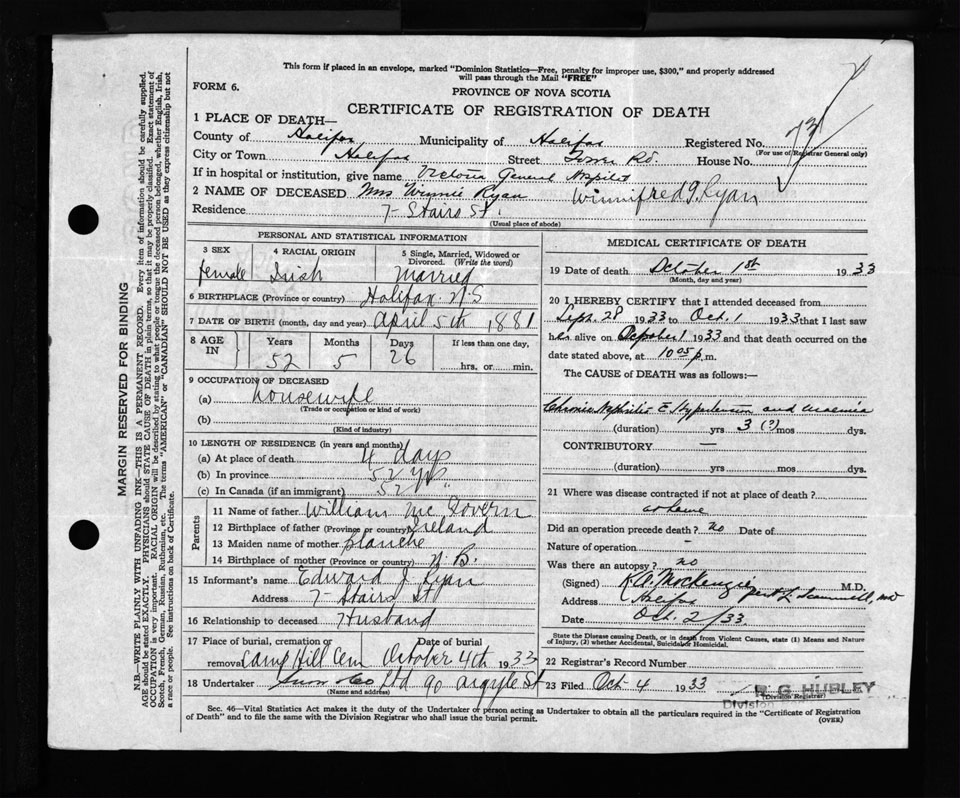 This form if placed in an envelope, marked "Dominion Statistics—Free, penalty for improper use, $300," and properly addressed
will pass through the Mail "FREE"
FORM 6.
PROVINCE OF NOVA SCOTIA
CERTIFICATE OF REGISTRATION OF DEATH
1 PLACE OF DEATH—
County of Halifax Municipality of Halifax Registered No. 73
(For use of Registrar General only)
City or Town Halifax Street Tower Rd. House No.
If in hospital or institution, give name Victoria General Hospital
2 NAME OF DECEASED Mrs Winnie Ryan Winnifred J. Ryan
Residence 7- Stairs St.
(Usual place of abode)
PERSONAL AND STATISTICAL INFORMATION
3 SEX 4 RACIAL ORIGIN 5 Single, Married, Widowed or
Divorced. (Write the word)
female Irish Married
6 BIRTHPLACE (Province or country) Halifax. N.S
7 DATE OF BIRTH (month, day and year) April 5th 1881
8 AGE IN Years Months Days If less than one day,
52 5 26 hrs. or min.
9 OCCUPATION OF DECEASED
(a) housewife
(Trade or occupation or kind of work)
(b)
(Kind of industry)
10 LENGTH OF RESIDENCE (in years and months)
(a) At place of death 4 days
(b) In province 52 yrs
(c) In Canada (if an immigrant) 52 "
Parents
11 Name of father William Mc Govern
12 Birthplace of father (Province or country) Ireland
13 Maiden name of mother Blanche
14 Birthplace of mother (Province or country) N. B.
15 Informant's name Edward J Ryan
Address 7- Stairs St
16 Relationship to deceased Husband
17 Place of burial, cremation or Date of burial
removal Camp Hill Cem October 4th 1933
18 Undertaker Snow Co Ltd 90 Argyle St
(Name and address)
MEDICAL CERTIFICATE OF DEATH
19 Date of death October 1st 1933
(Month, day and year)
20 I HEREBY CERTIFY that I attended deceased from
Sept. 28 1933 to Oct. 1 1933 that I last saw
her alive on October 1 1933 and that death occurred on the
date stated above, at 10 05 p.m.
The CAUSE of DEATH was as follows:—
Chronic Nephritis c Hypertension and Uraemia
(duration) yrs 3 (?) mos dys.
CONTRIBUTORY —
(duration) yrs mos dys.
21 Where was disease contracted if not at place of death?
at home
Did an operation precede death? no Date of
Nature of operation –
Was there an autopsy? no
(Signed) K.A. MacKenzie M.D.
per L. Scammell, MD
Address Halifax
Date Oct. 2/33.
State the Disease causing Death, or in death from Violent Causes, state (1) Means and Nature
of Injury, (2) whether Accidental, Suicidal or Homicidal.
22 Registrar's Record Number
23 Filed Oct 4 1933 R. G. HUBLEY
(Division Registrar)
Sec. 46—Vital Statistics Act makes it the duty of the Undertaker or person acting as Undertaker to obtain all the particulars required in the "Certificate of Registration
of Death" and to file the same with the Division Registrar who shall issue the burial permit. (OVER)
MARGIN RESERVED FOR BINDING
N.B.—WRITE PLAINLY WITH UNFADING INK—THIS IS A PERMANENT RECORD. Every item of information should be carefully supplied.
AGE should be stated EXACTLY. PHYSICIANS should STATE CAUSE OF DEATH in plain terms, so that it may be properly classified. Exact statement of
OCCUPATION is very important. RACIAL ORIGIN will be described by stating to what people or tongue the deceased person belonged, whether English, Irish,
Scotch, French, German, Russian, Ruthenian, etc. The terms "AMERICAN" or "CANADIAN" SHOULD NOT BE USED as they express citizenship but not
a race or people. See instructions on back of Certificate.